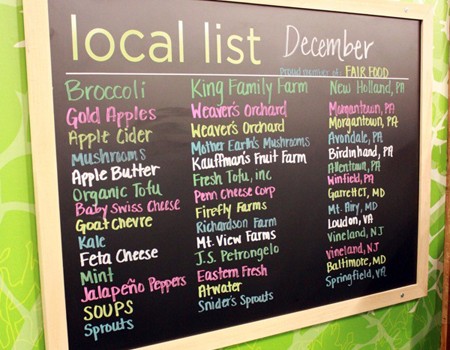 local list December
proud member of: FAIR FOOD
Broccoli King Family Farm New Holland, PA
Gold Apples Weaver's Orchard Morgantown, PA
Apple Cider Weaver's Orchard Morgantown, PA
Mushrooms Mother Earth's Mushrooms Avondale, PA
Apple Butter Kauffman's Fruit Farm Birdinhand, PA
Organic Tofu Fresh Tofu, inc Allentown, PA
Baby Swiss Cheese Penn Cheese Corp Winfield, PA
Goat Chevre Firefly Farms GarreHCT, MD
Kale Richardson Farm Mt. Airy, MD
Feta Cheese Mt. View Farms Loudon, VA
Mint J.S. Petrongelo Vineland, NJ
Jalapeño Peppers Eastern Fresh vineland, NJ
SOUPS Atwater Baltimore, MD
Sprouts Snider's Sprouts Springfield, VA